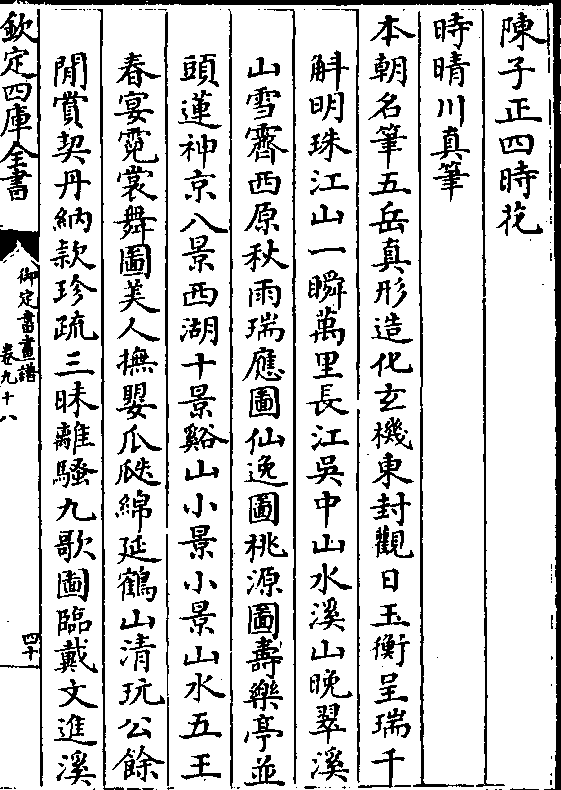 陳子正四時花
時晴川真筆
本朝名筆五岳真形造化玄機東封觀日玉衡呈瑞千
斛明珠江山一瞬萬里長江吳中山水溪山晚翠溪
山雪霽西原秋雨瑞應圖仙逸圖桃源圖壽樂亭並
頭蓮神京八景西湖十景谿山小景小景山水五王
春宴霓裳舞圖美人撫嬰瓜瓞綿延鶴山清玩公餘
閒賞契丹納款珍疏三昧離騷九歌圖臨戴文進溪
欽定四庫全書
御定書畫譜
卷九十八
四十